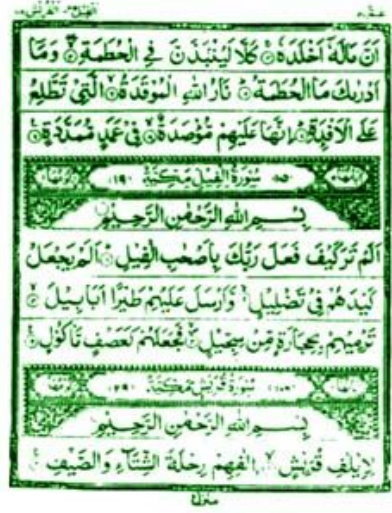 اَنَّ مَالَهٗٓ اَخْلَدَهٗ ۚ كَلَّا لَيُنْۢبَذَنَّ فِي الْحُطَمَةِ ۖ وَمَآ
اَدْرٰىكَ مَا الْحُطَمَةُ ؕ نَارُ اللّٰهِ الْمُوْقَدَةُ ۙ الَّتِيْ تَطَّلِعُ
عَلَى الْاَفْـِٕدَةِ ؕ اِنَّهَا عَلَيْهِمْ مُّؤْصَدَةٌ ۙ فِيْ عَمَدٍ مُّمَدَّدَةٍ
سُوْرَةُ الْفِيْلِ مَكِّيَّةٌ
بِسْمِ اللّٰهِ الرَّحْمٰنِ الرَّحِيْمِ
اَلَمْ تَرَ كَيْفَ فَعَلَ رَبُّكَ بِاَصْحٰبِ الْفِيْلِ ؕ اَلَمْ يَجْعَلْ
كَيْدَهُمْ فِيْ تَضْلِيْلٍ ۙ وَّاَرْسَلَ عَلَيْهِمْ طَيْرًا اَبَابِيْلَ ۙ
تَرْمِيْهِمْ بِحِجَارَةٍ مِّنْ سِجِّيْلٍ ۙ فَجَعَلَهُمْ كَعَصْفٍ مَّاْكُوْلٍ
سُوْرَةُ قُرَيْشٍ مَكِّيَّةٌ
بِسْمِ اللّٰهِ الرَّحْمٰنِ الرَّحِيْمِ
لِاِيْلٰفِ قُرَيْشٍ ۙ اٖلٰفِهِمْ رِحْلَةَ الشِّتَآءِ وَالصَّيْفِ
منزل